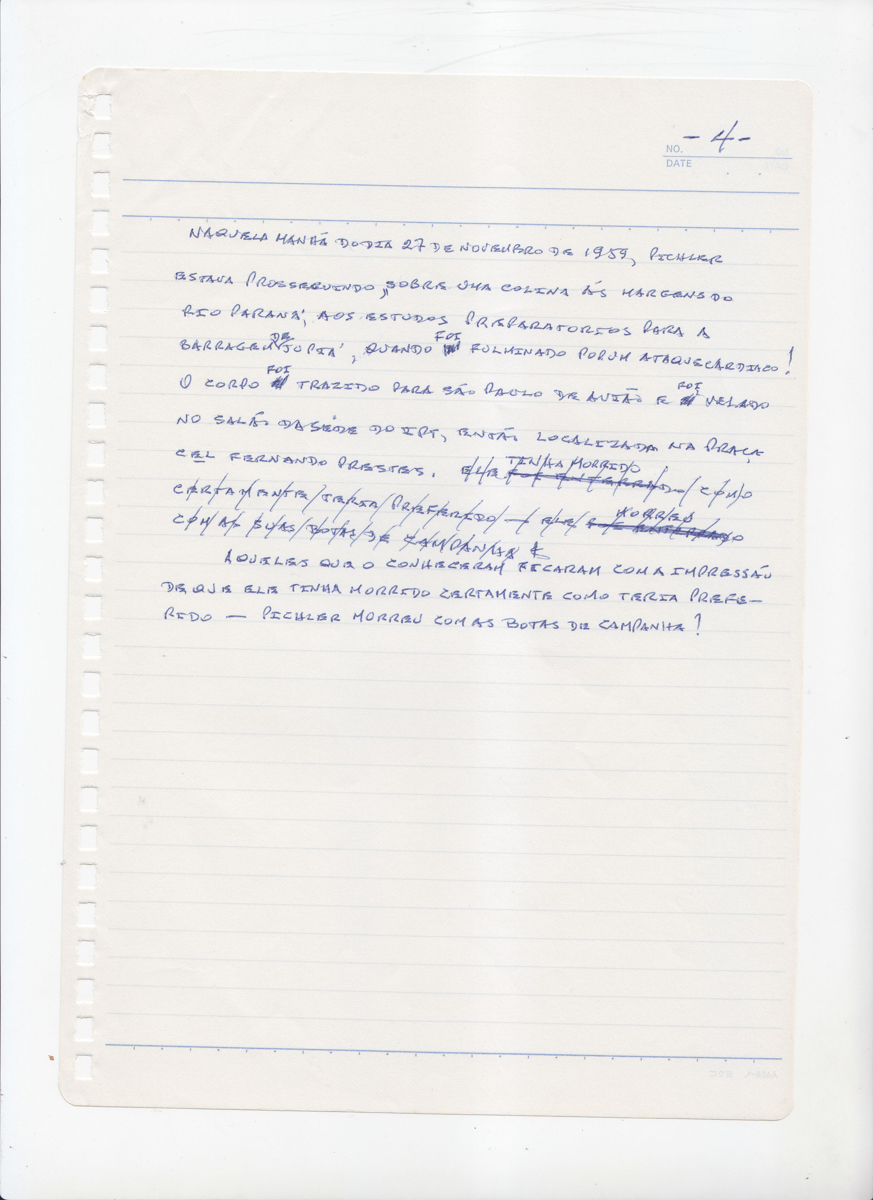 - 4 -
NO.
DATE
NAQUELA MANHÃ DO DIA 27 DE NOVEMBRO DE 1959, PICHLER
ESTAVA PROSSEGUINDO, SOBRE UMA COLINA ÀS MARGENS DO
RIO PARANÁ, AOS ESTUDOS PREPARATORIOS PARA A
BARRAGEM DE JUPIÁ, QUANDO FOI FULMINADO POR UM ATAQUE CARDIACO!
O CORPO FOI TRAZIDO PARA SÃO PAULO DE AVIÃO E FOI VELADO
NO SALÃO DA SÉDE DO IPT, ENTÃO LOCALIZADA NA PRAÇA
CEL FERNANDO PRESTES. ELE TINHA MORRIDO COMO
CERTAMENTE TERIA PREFERIDO — ELE MORREU
COM AS SUAS BOTAS DE CAMPANHA
AQUELES QUE O CONHECERAM FICARAM COM A IMPRESSÃO
DE QUE ELE TINHA MORRIDO CERTAMENTE COMO TERIA PREFE-
RIDO — PICHLER MORREU COM AS BOTAS DE CAMPANHA!